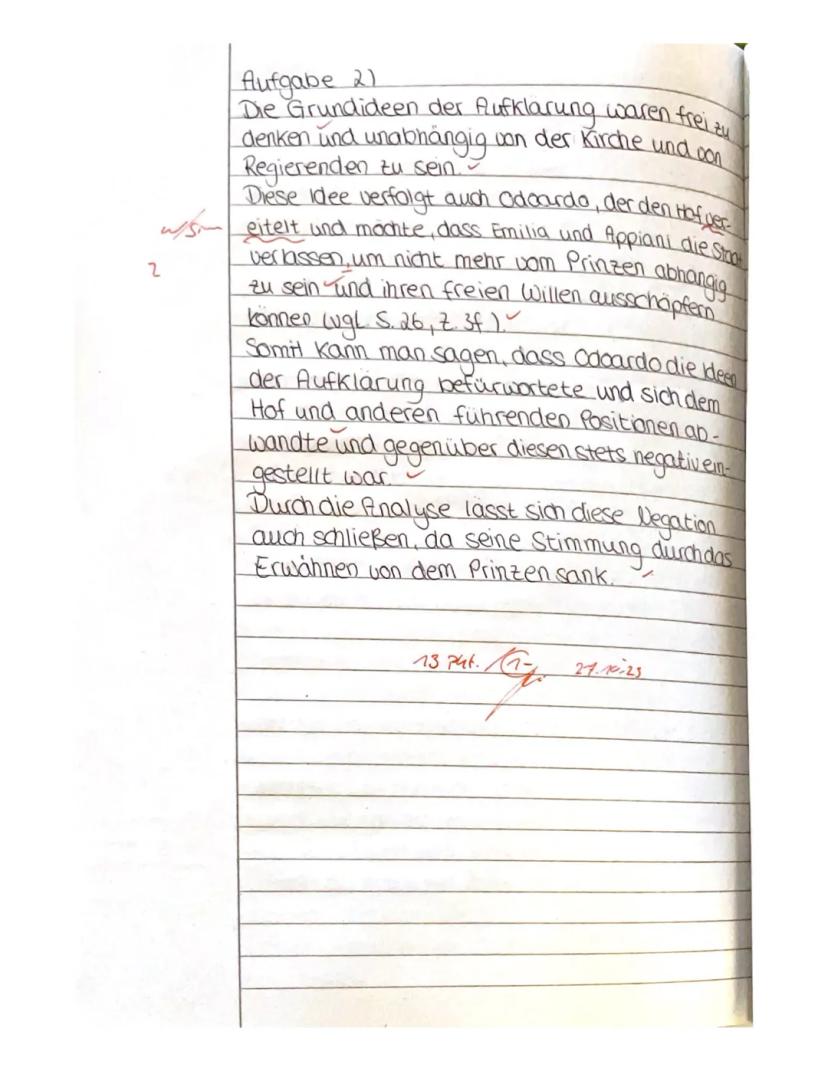 Aufgabe 2)
Die Grundideen der Aufklärung waren frei zu
denken und unabhängig von der Kirche und von
Regierenden zu sein.
Diese Idee verfolgt auch Odoardo, der den Hof ver-
eitelt und möchte, dass Emilia und Appiani die Stadt
verlassen, um nicht mehr vom Prinzen abhängig
2
zu sein und ihren freien Willen ausschöpfern
können (vgl. S. 26, Z. 3f.).
Somit kann man sagen, dass Odoardo die Ideen
der Aufklärung befürwortete und sich dem
Hof und anderen führenden Positionen ab-
wandte und gegenüber diesen stets negativ ein-
gestellt war.
Durch die Analyse lässt sich diese Negation
auch schließen, da seine Stimmung durch das
Erwähnen von dem Prinzen sank.
13 Pkt. 1-